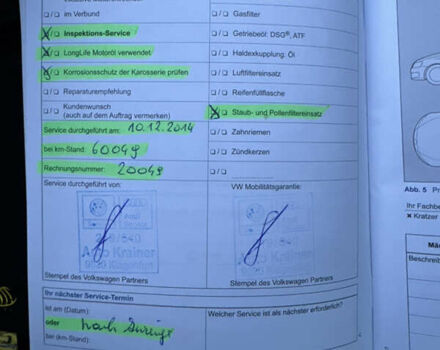 ❑/❑ im Verbund
❑/❑ Gasfilter
❑/❑ Inspektions-Service
❑/❑ Getriebeöl: DSG®, ATF
❑/❑ LongLife Motoröl verwendet
❑/❑ Haldexkupplung: Öl
❑/❑ Korrosionsschutz der Karosserie prüfen
❑/❑ Luftfiltereinsatz
❑/❑ Reparaturempfehlung
❑/❑ Reifenfüllflasche
❑/❑ Kundenwunsch
(auch auf dem Auftrag vermerken)
❑/❑ Staub- und Pollenfiltereinsatz
Service durchgeführt am: 10.12.2014
❑/❑ Zahnriemen
bei km-Stand: 60049
❑/❑ Zündkerzen
Rechnungsnummer: 20049
❑/❑
Service durchgeführt von:
VW Mobilitätsgarantie:
Auto Krainer
Klagenfurt
Stempel des Volkswagen Partners
Stempel des Volkswagen Partners
Ihr nächster Service-Termin
ist am (Datum):
Welcher Service ist als nächster erforderlich?
oder nach Anzeige
bei (km-Stand):
Abb. 5
Ihr Fachbe
× Kratzer
Mä
Beschreib